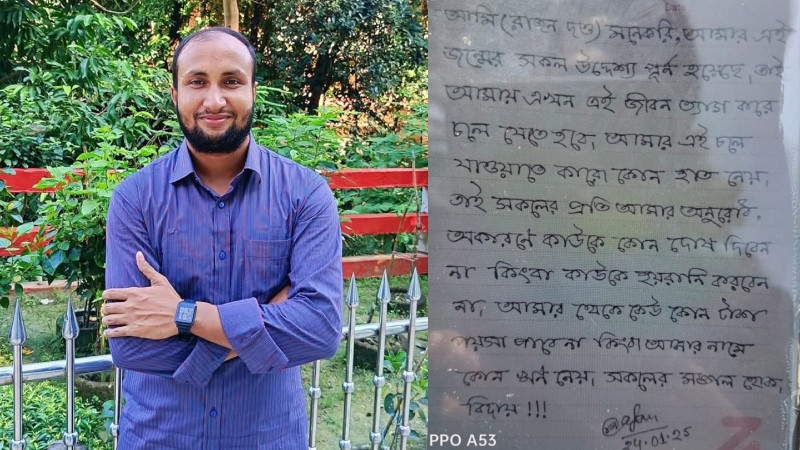 আমি (রাহুল দত্ত) মনেকরি, আমার এই
জন্মের সকল উদ্দেশ্য পূর্ন হয়েছে, তাই
আমায় এখন এই জীবন ত্যাগ করে
চলে যেতে হবে, আমার এই চলে
যাওয়াতে কারো কোন হাত নেয়,
তাই সকলের প্রতি আমার অনুরোধ,
অকারনে কাউকে কোন দোষ দিবেন
না কিংবা কাউকে হয়রানি করবেন
না, আমার থেকে কেউ কোন টাকা
পয়সা পাবে না কিংবা আমার নামে
কোন ঋন নেয়, সকলের মঙ্গল হোক,
বিদায় !!!
24.01.25
PPO A53